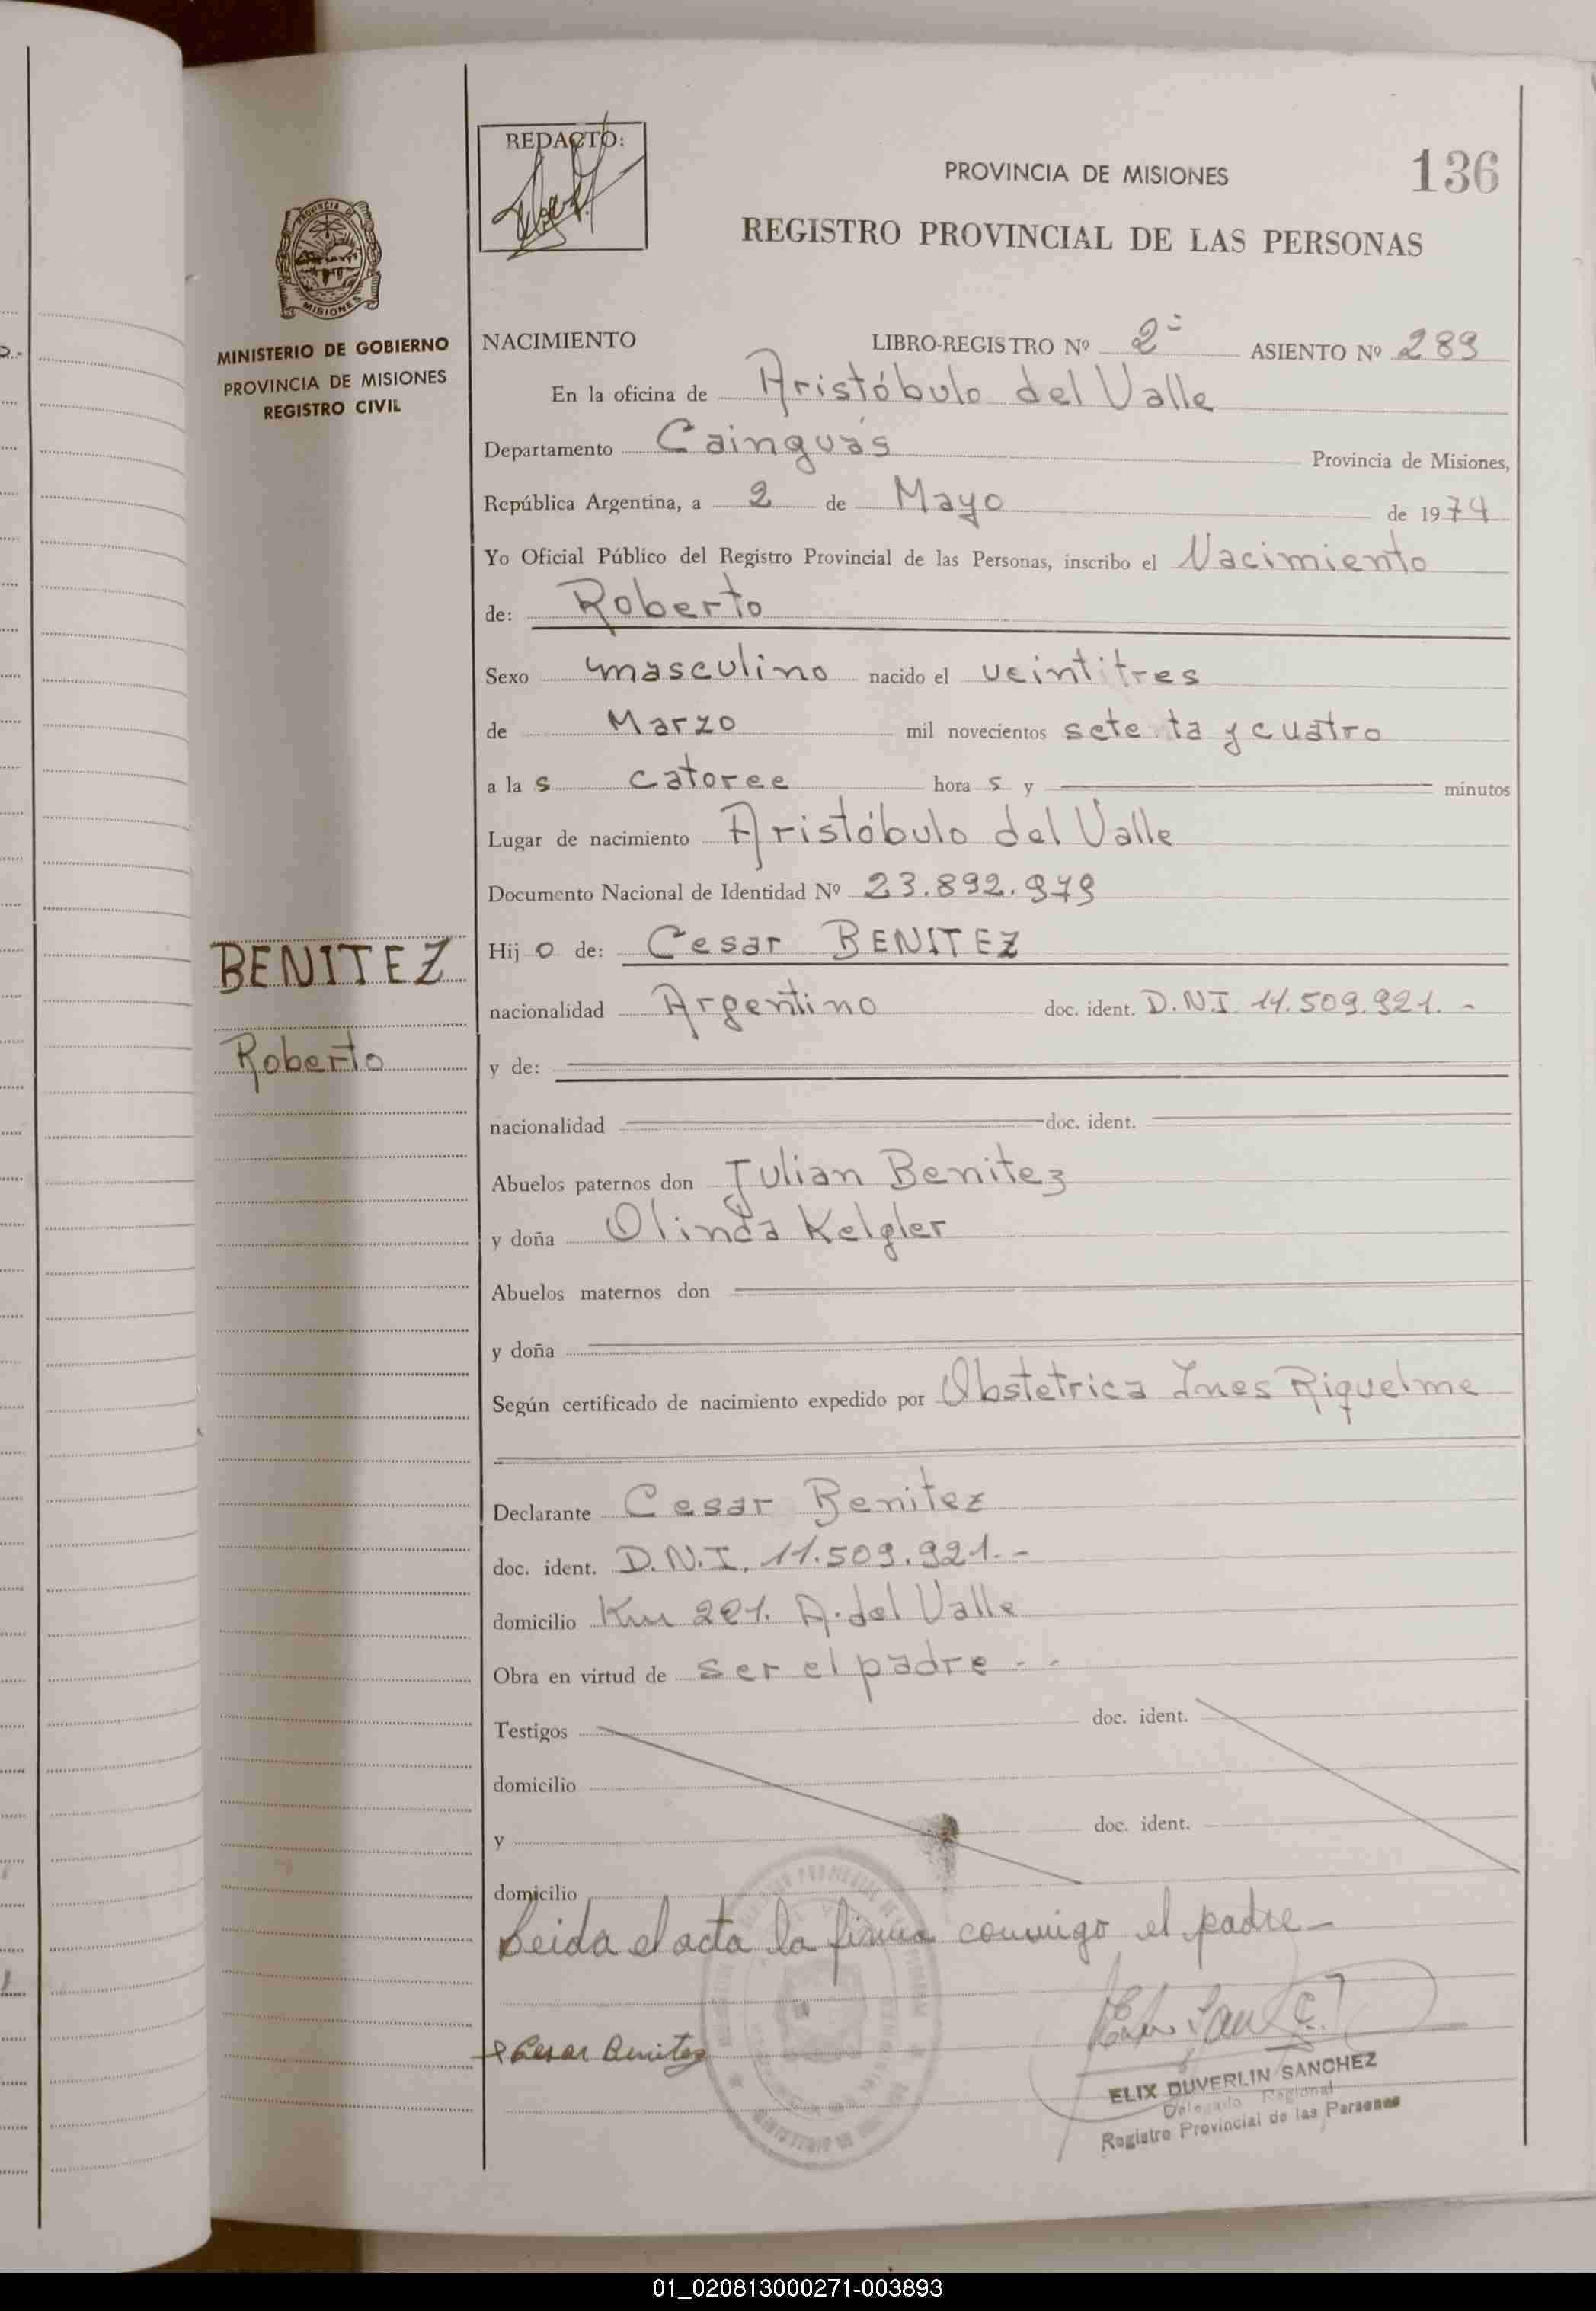 REDACTO:
PROVINCIA DE MISIONES
136
REGISTRO PROVINCIAL DE LAS PERSONAS
PROVINCIA DE
MISIONES
MINISTERIO DE GOBIERNO
PROVINCIA DE MISIONES
REGISTRO CIVIL
NACIMIENTO LIBRO-REGISTRO Nº 2º ASIENTO Nº 289
En la oficina de Aristóbulo del Valle
Departamento Cainguás Provincia de Misiones,
República Argentina, a 2 de Mayo de 1974
Yo Oficial Público del Registro Provincial de las Personas, inscribo el Nacimiento
de: Roberto
Sexo masculino nacido el veintitres
de Marzo mil novecientos setenta y cuatro
a las catorce horas y minutos
Lugar de nacimiento Aristóbulo del Valle
Documento Nacional de Identidad Nº 23.892.979
BENITEZ
Roberto
Hijo de: Cesar BENITEZ
nacionalidad Argentino doc. ident. D.N.I. 11.509.921.-
y de:
nacionalidad doc. ident.
Abuelos paternos don Julian Benitez
y doña Olinda Kelgler
Abuelos maternos don
y doña
Según certificado de nacimiento expedido por Obstetrica Ines Riquelme
Declarante Cesar Benitez
doc. ident. D.N.I. 11.509.921.-
domicilio Km 221. A. del Valle
Obra en virtud de ser el padre - -
Testigos doc. ident.
domicilio
y doc. ident.
domicilio
Leida el acta la firma conmigo el padre-
Cesar Benitez
ELIX DUVERLIN SANCHEZ
Delegado Regional
Registro Provincial de las Personas
01_020813000271-003893